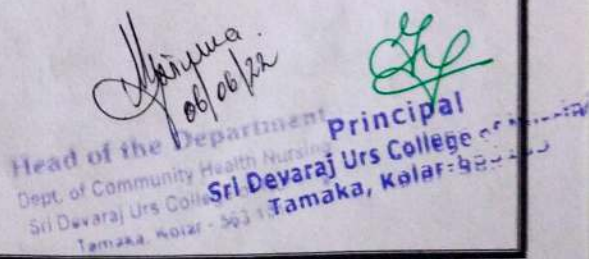 06/06/22
Head of the Department
Dept. of Community Health Nursing
Sri Devaraj Urs
Tamaka, Kolar - 563
Principal
Sri Devaraj Urs College of
Tamaka, Kolar-